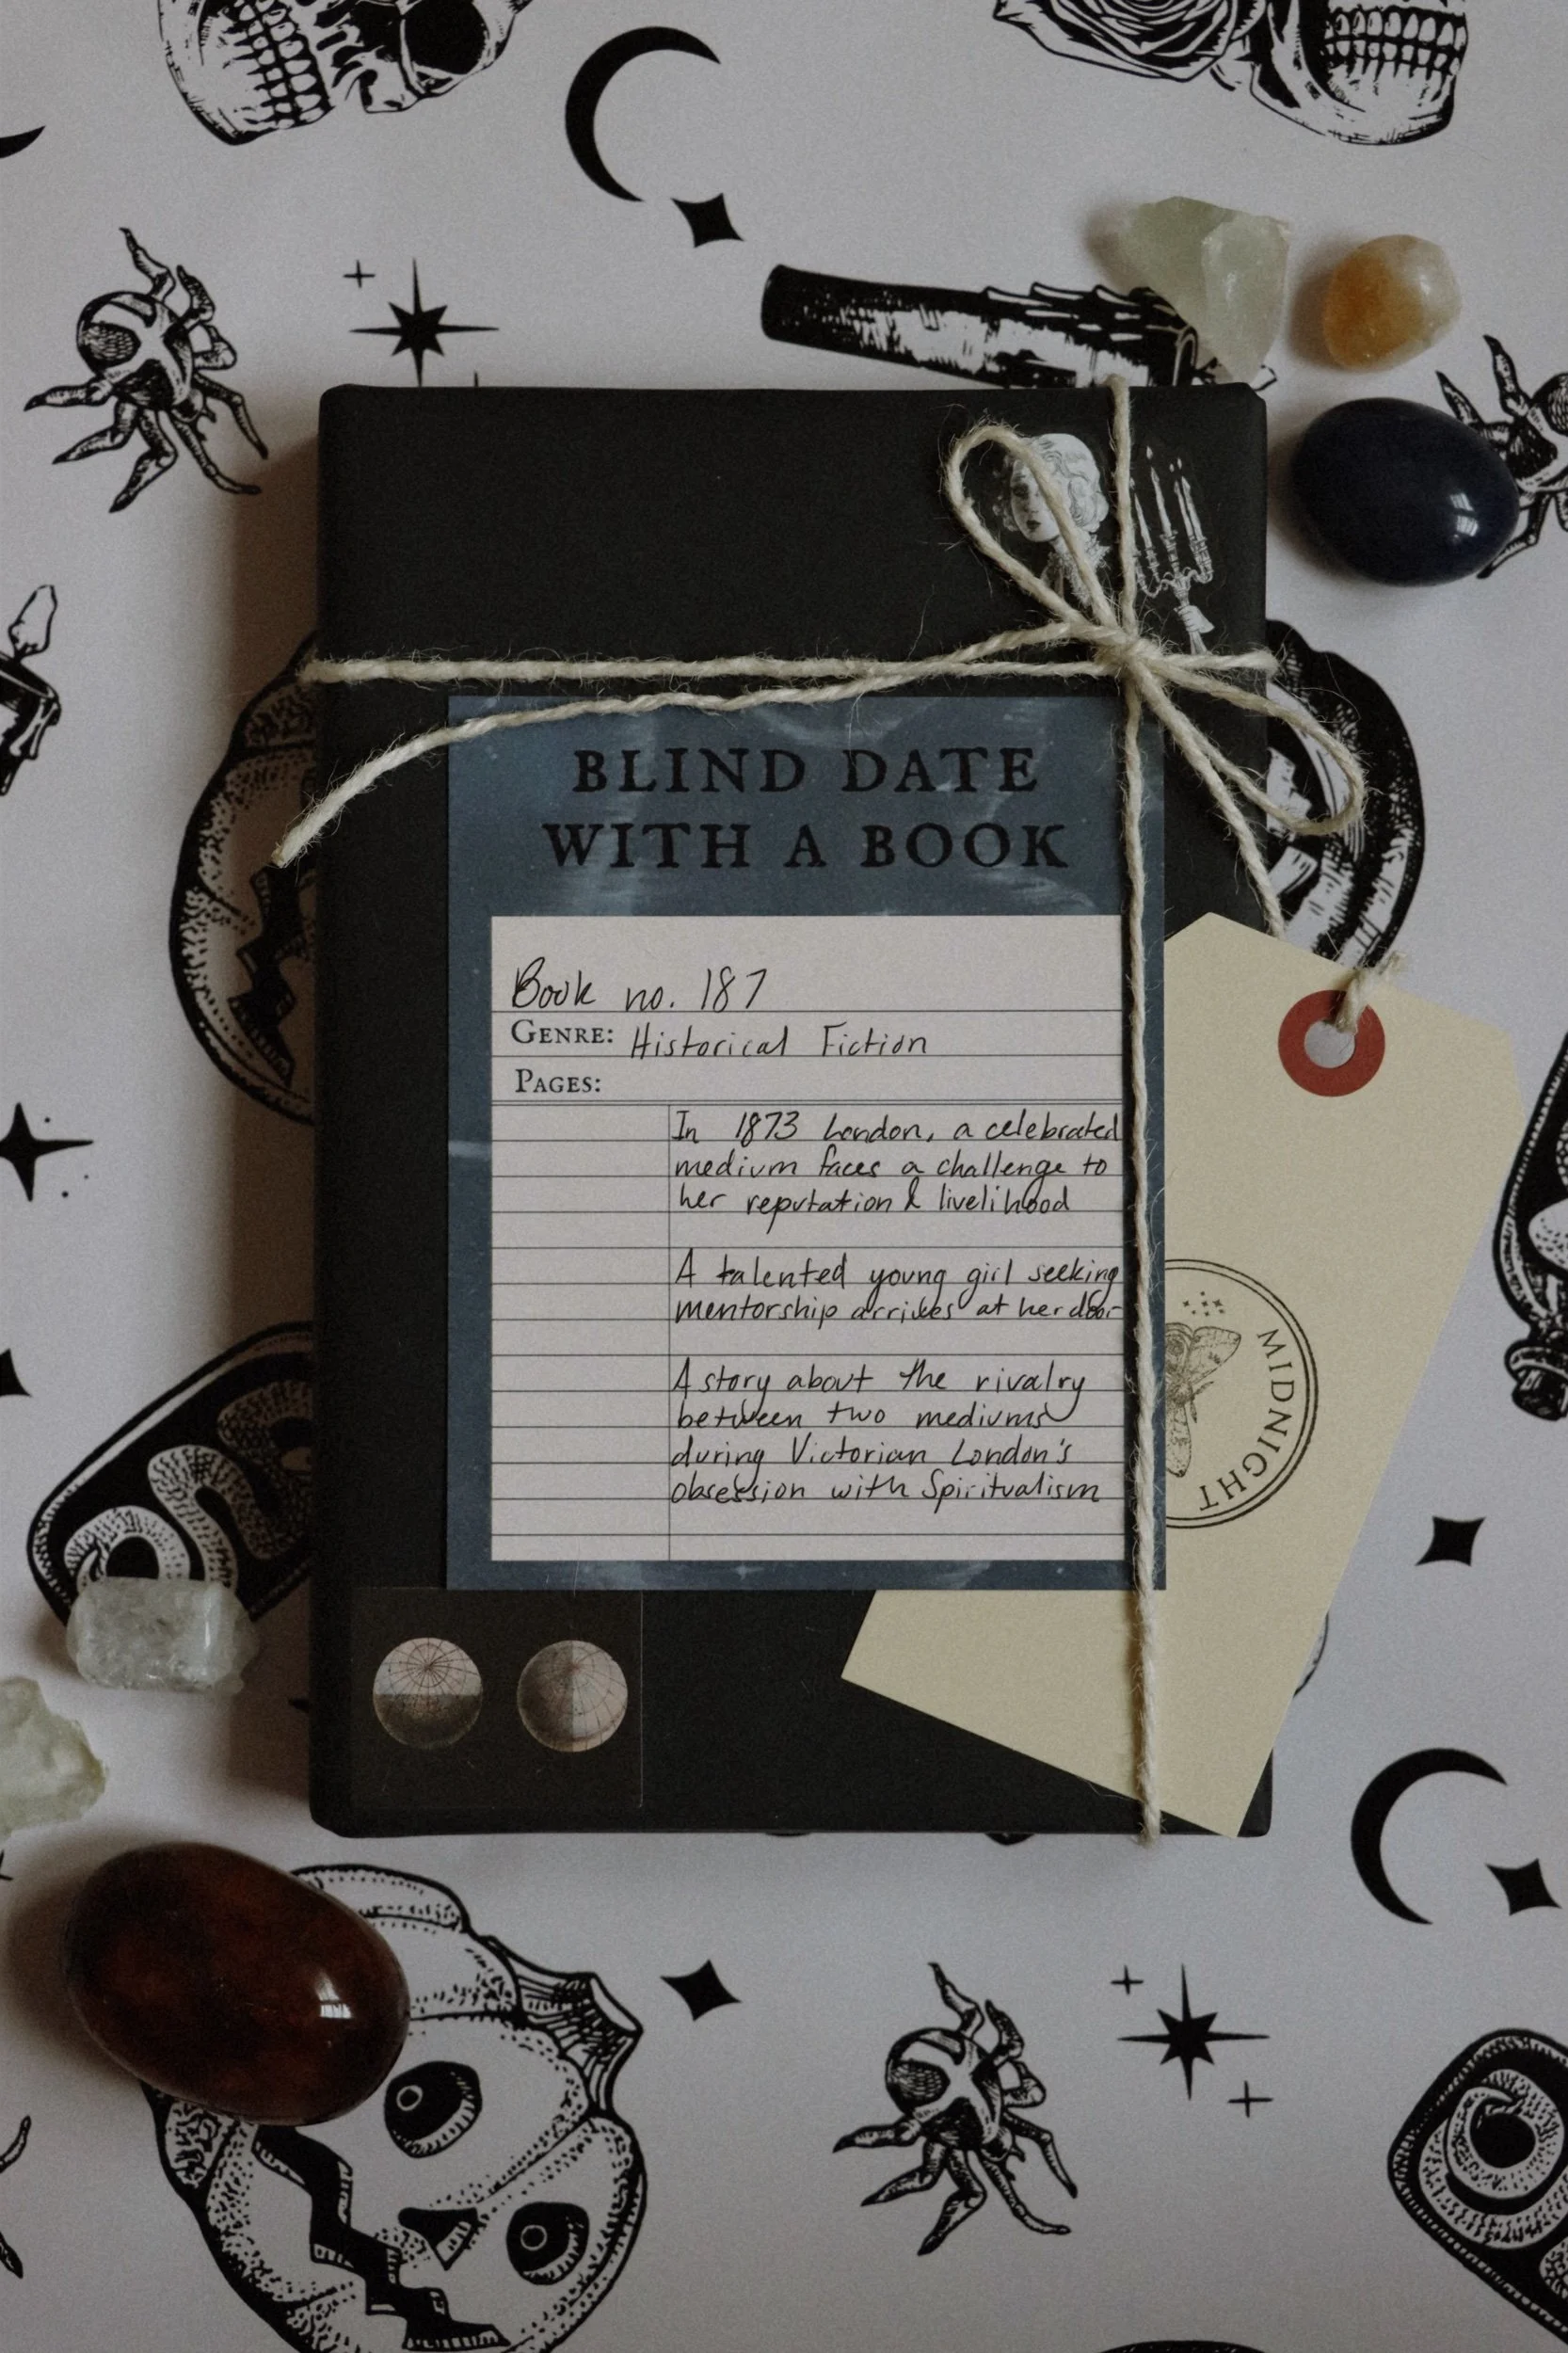 BLIND DATE
WITH A BOOK
Book no. 187
GENRE: Historical Fiction
PAGES:
In 1873 London, a celebrated
medium faces a challenge to
her reputation & livelihood
A talented young girl seeking
mentorship arrives at her door
A story about the rivalry
between two mediums
during Victorian London's
obsession with Spiritualism
MIDNIGHT